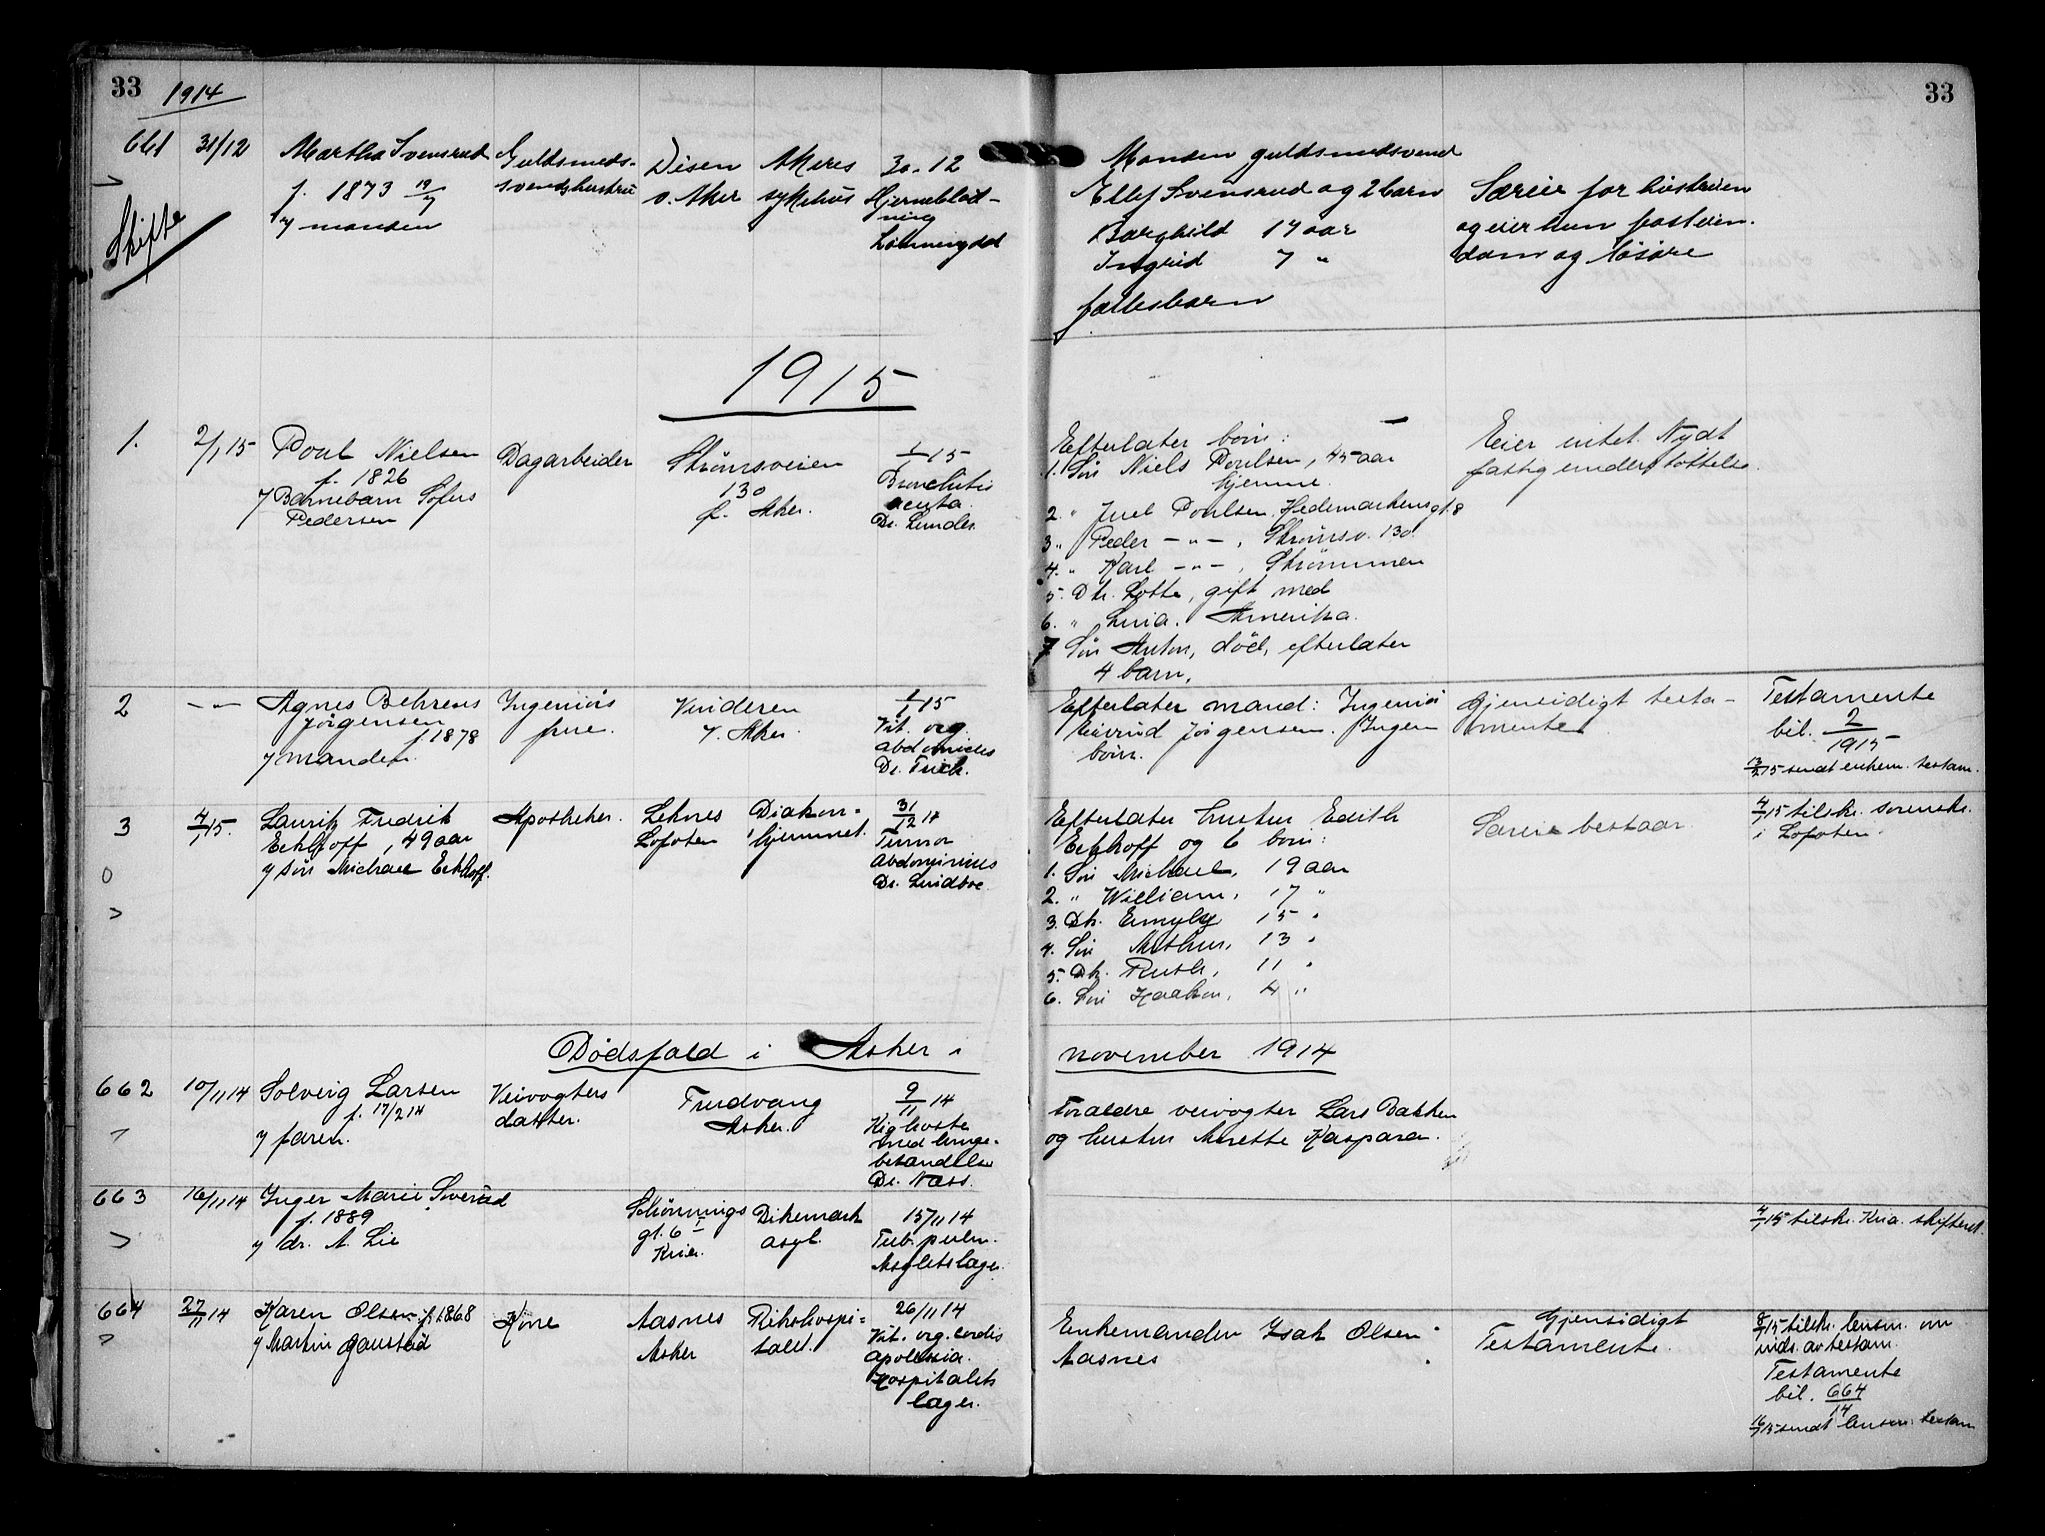 33
1914
33
661
31/12
Martha Svensrud
f. 1873 19/7
v/ manden
Guldsmeds-
svendshustru
Disen
v. Aker
Akers
sykehus
30.12
Hjerneblød-
ning
Manden guldsmedsvend
Ellef Svensrud og 2 barn
Borghild 17 aar
Ingrid 7 "
fællesbarn
Særeie for hustruen
og eier hun fasteien-
dom og løsøre
Skifte
1915
1.
2/1 15
Poul Nielsen
f. 1826
v/ Barnebarn Sofus
Pedersen
Dagarbeider
Strømsveien
130
Ø. Aker.
1/1 15
Bronchitis
acuta.
Dr. Lunder
Efterlater børn:
1. Søn Niels Poulsen, 45 aar
hjemme.
2. " Juel Poulsen, Hedemarkensgt. 8
3. " Peder — " — , Strømsv. 130.
4. " Karl — " — , Strømmen
5. Dtr. Lotte, gift med
6. " Lina. Amerika.
7 Søn Anton, død, efterlater
4 barn.
Eier intet. Nydt
fattigunderstøttelse.
2
— " —
Agnes Behrens
Jørgensen
f. 1878
v/ manden.
Ingeniørs
frue.
Vinderen
V. Aker.
1/1 15
Vit. org.
abdominis
Dr. Frich.
Efterlater mand: Ingeniør
Eivind Jørgensen. Ingen
børn.
Gjensidigt testa-
mente
Testamente
bil. 2/1915
13/2 15 sendt enkem. testam.
3
4/1 15.
Lauritz Fredrik
Eckhoff, 49 aar
v/ søn Michael Eckhoff.
Apotheker.
Leknes
Lofoten
Diakon-
hjemmet.
31/12 14
Tumor
abdominis
Dr. Lindboe
Efterlater hustru Edith
Eckhoff og 6 børn:
1. Søn Michael, 19 aar
2. " William, 17 "
3. Dtr. Emyly 15 "
4. Søn Arthur, 13 "
5. Dtr. Ruth, 11 "
6. Søn Haakon, 4 "
Særeie bestaar.
4/1 15 tilskr. sorenskr.
i Lofoten.
Dødsfald i Asker i
november 1914
662
10/11 14
Solveig Larsen
f. 17/2 14
v/ faren.
Veivogters
datter.
Trudvang
Asker.
9/11 14
Kighoste
med lunge-
betændelse
Dr. Næss.
Forældre veivogter Lars Bakken
og hustru Anette Kaspara.
663
16/11 14
Inger Marie Sverud
f. 1889
v/ dr. A. Lie
Schønnings
gt. 6 I
Kria.
Dikemark
asyl.
15/11 14
Tub. pulm.
Asylets læge.
4/1 15 tilskr. Kria. skifteret.
664
27/11 14
Karen Olsen f. 1868
v/ Martin Gaustad
Kone
Aasnes
Asker
Rikshospi-
talet.
26/11 14
Vit. org. cordis
apoplexia.
Hospitalets
læge.
Enkemanden Isak Olsen
Aasnes
Gjensidigt
Testamente.
8/1 15 tilskr. lensm. om
inds. av testam.
Testamente
bil. 664/14
16/1 15 sendt lensm. testam